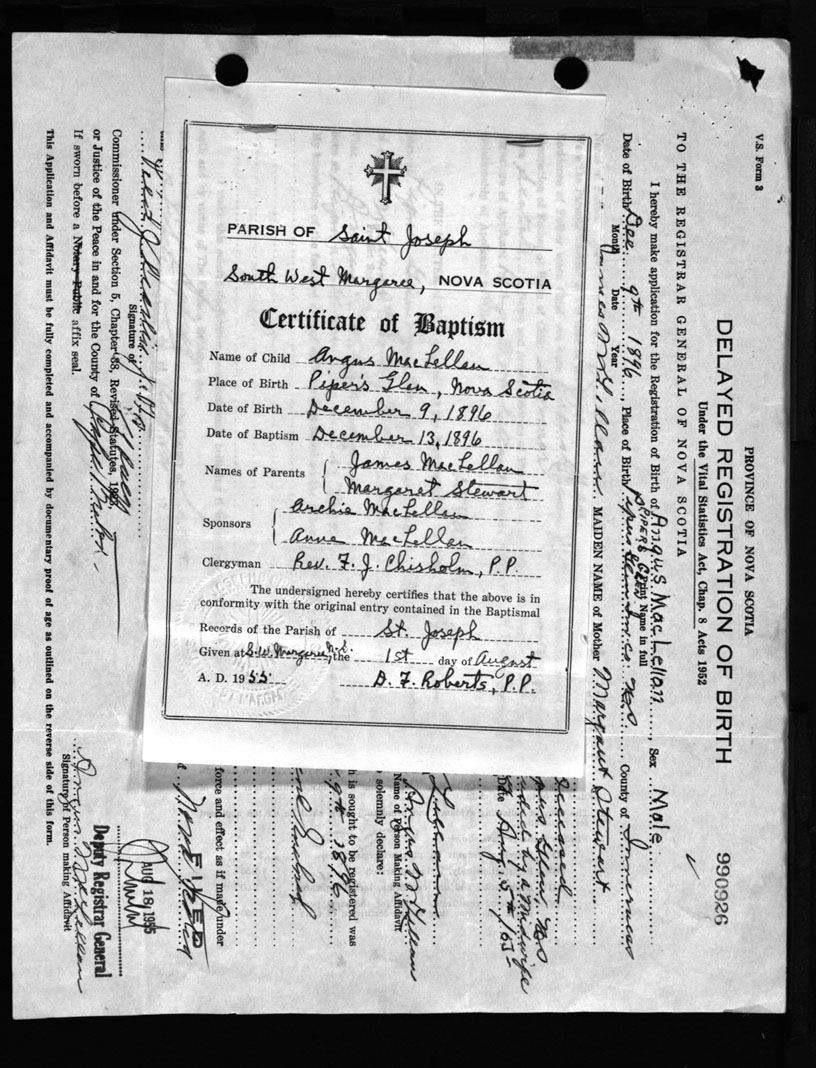 PARISH OF Saint Joseph
South West Margaree, NOVA SCOTIA
Certificate of Baptism
Name of Child Angus MacLellan
Place of Birth Piper's Glen, Nova Scotia
Date of Birth December 9, 1896
Date of Baptism December 13, 1896
Names of Parents James MacLellan
Margaret Stewart
Sponsors Archie MacLellan
Anne MacLellan
Clergyman Rev. F. J. Chisholm, P.P.
The undersigned hereby certifies that the above is in
conformity with the original entry contained in the Baptismal
Records of the Parish of St. Joseph
Given at S.W. Margaree, N.S. the 1st day of August
A. D. 1955 D. F. Roberts, P.P.
V.S. Form 3
PROVINCE OF NOVA SCOTIA
DELAYED REGISTRATION OF BIRTH 990926
Under the Vital Statistics Act, Chap. 8 Acts 1952
TO THE REGISTRAR GENERAL OF NOVA SCOTIA
I hereby make application for the Registration of Birth of Angus MacLellan, Sex Male
Print Name in full
Date of Birth Dec 9th 1896, Place of Birth Pipers Glen County of Inverness
Month Date Year
MAIDEN NAME of Mother Margaret Stewart
Deceased
Glen, NS
by a Midwife
Date Aug 5th
Angus McLellan
Name of Person Making Affidavit
, solemnly declare:
h is sought to be registered was
9th 1896
force and effect as if made under
FILED
AUG 18 1955
Deputy Registrar General
Signature of
Commissioner under Section 5, Chapter 38, Revised Statutes, 1923
or Justice of the Peace in and for the County of
If sworn before a Notary Public affix seal.
Angus MacLellan
Signature of Person making Affidavit
This Application and Affidavit must be fully completed and accompanied by documentary proof of age as outlined on the reverse side of this form.